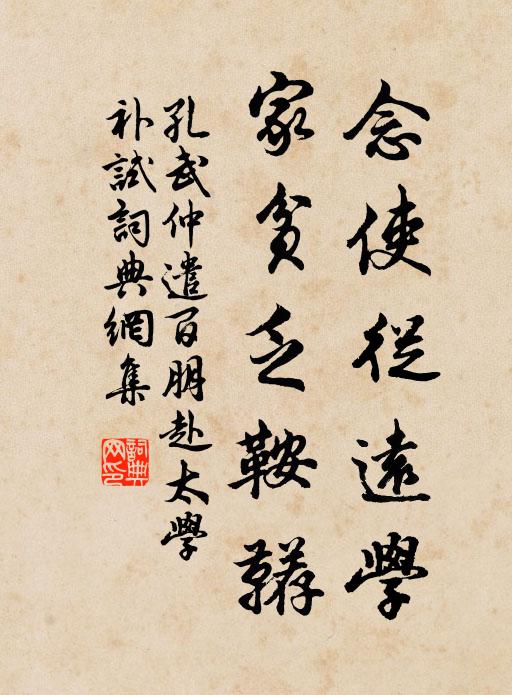 念使從遠學
家貧乏鞍韉
孔武仲遣百朋赴太學
补試詞典網集
詞典网印